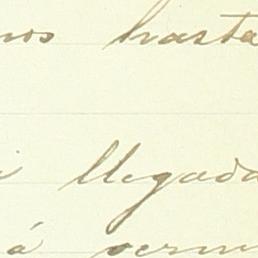 nos hasta
llegada
á